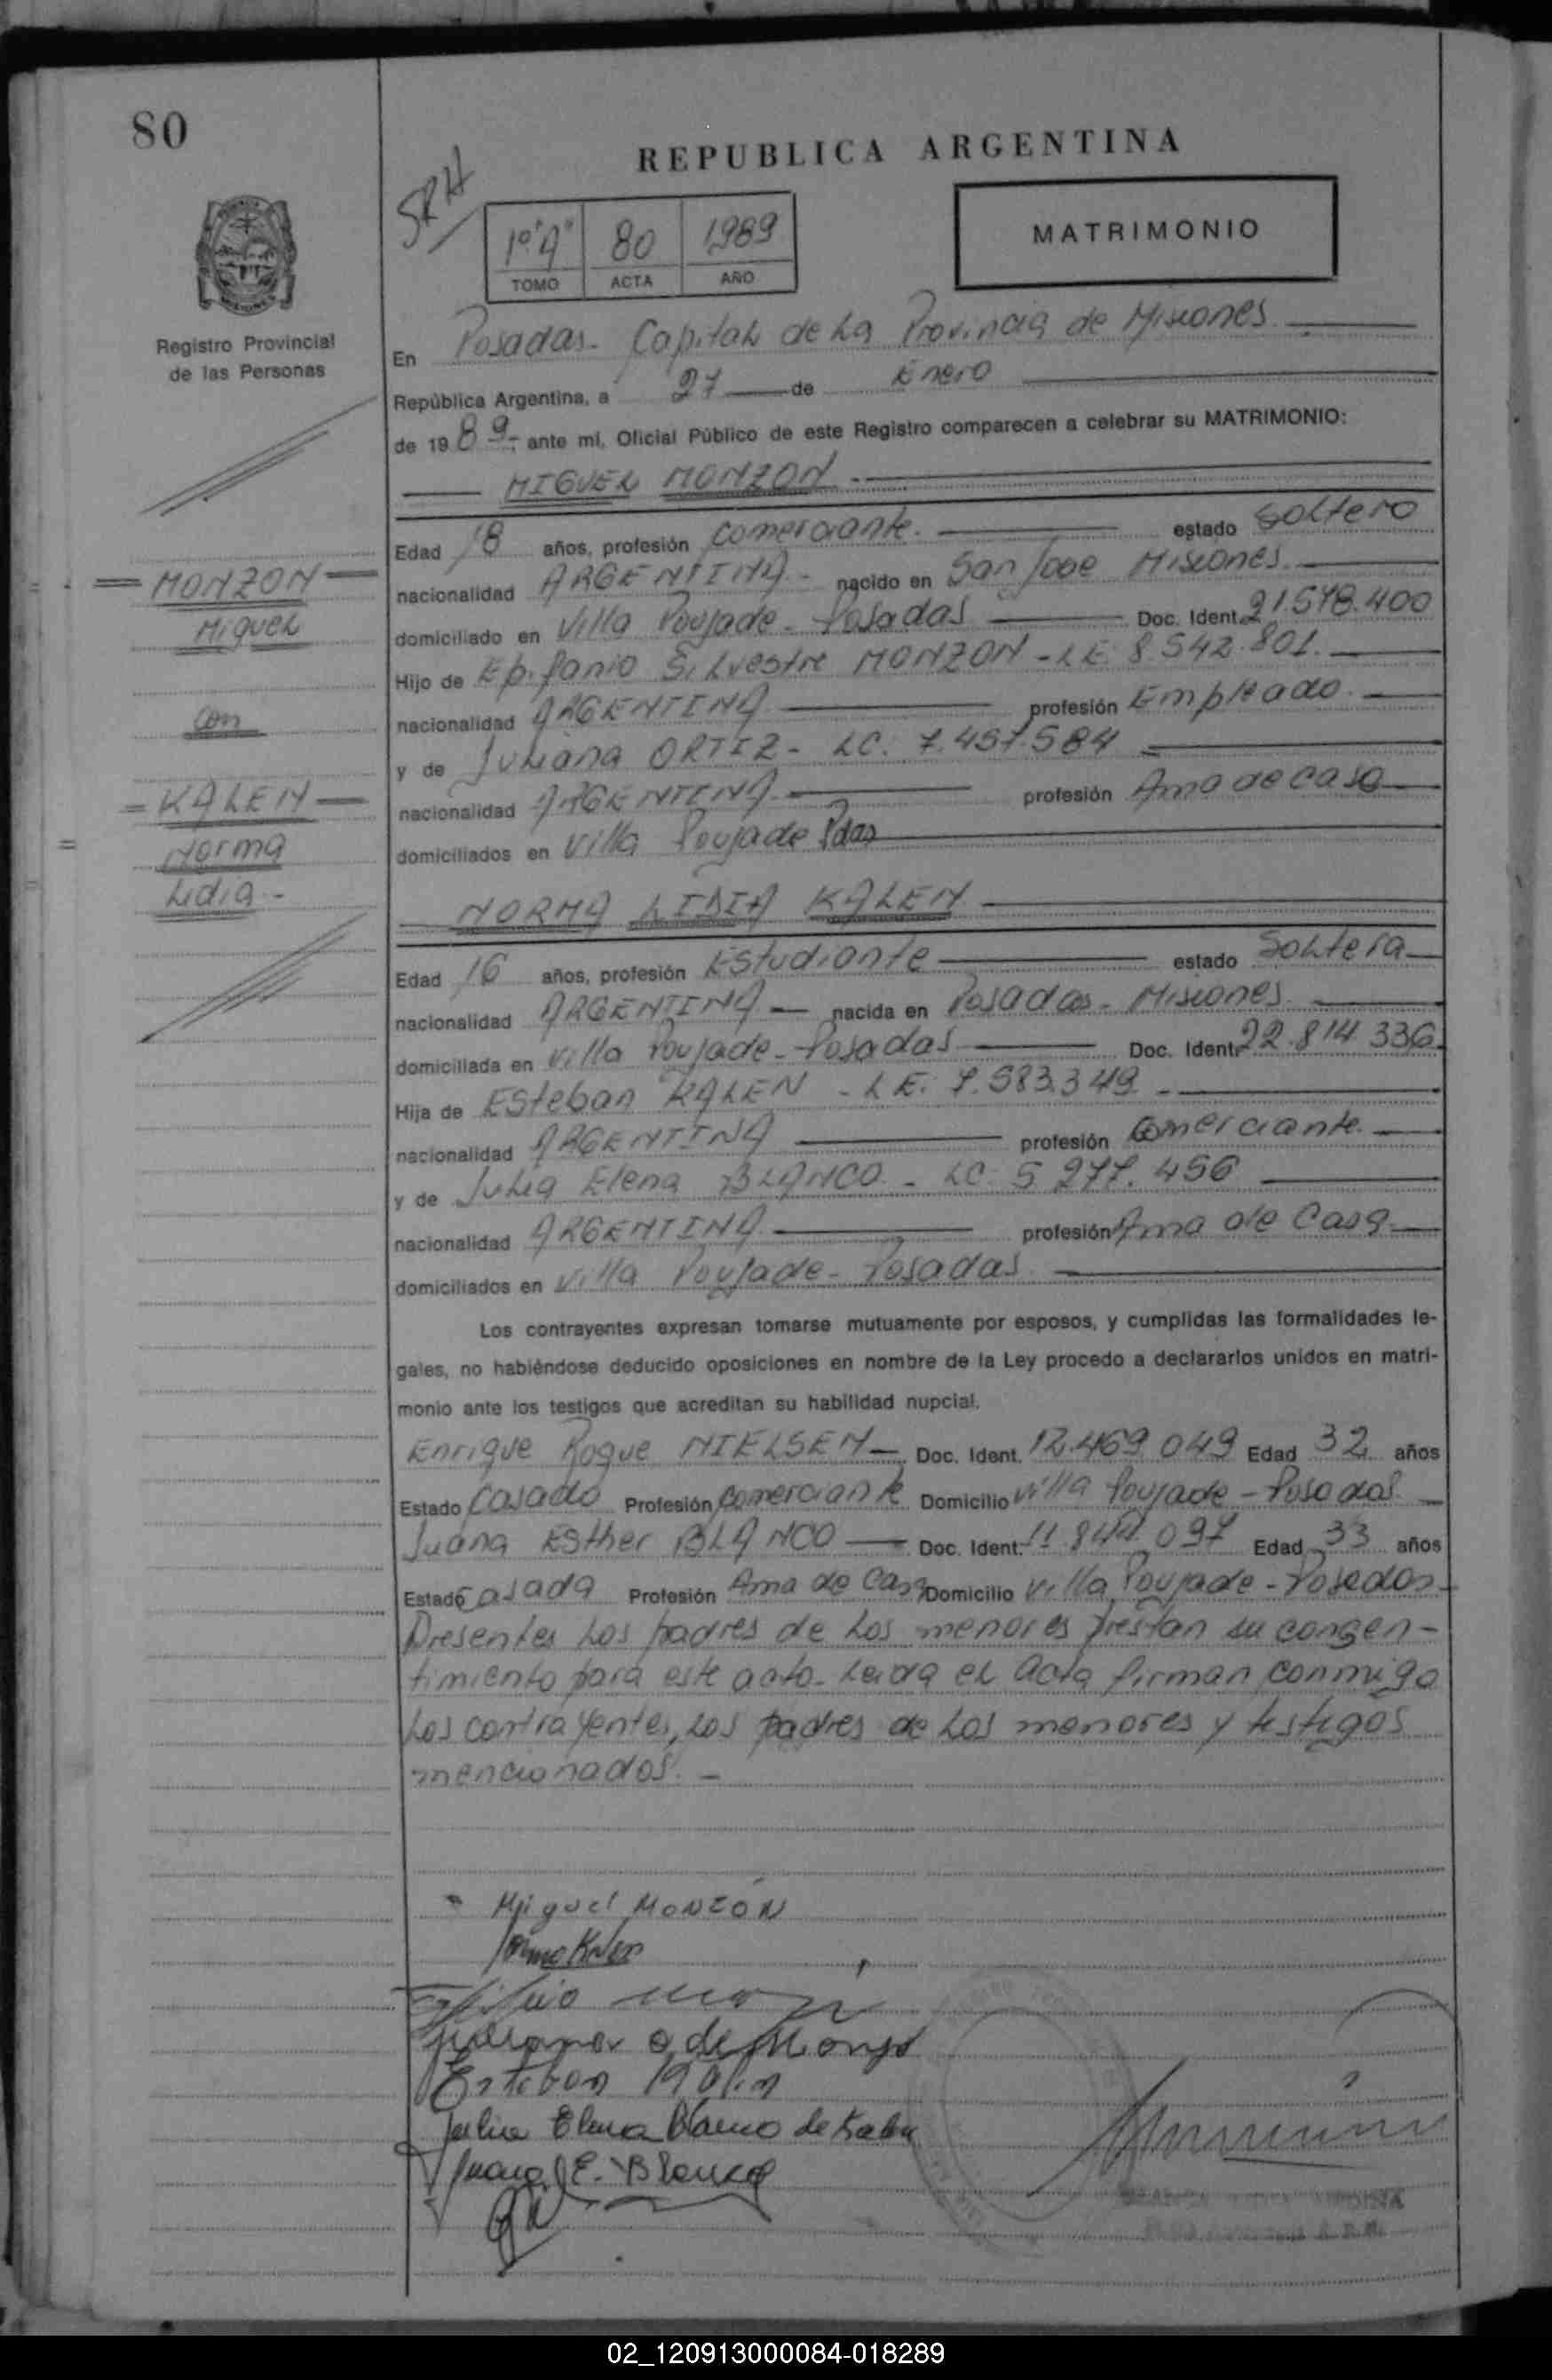 80
REPUBLICA ARGENTINA
SRH
1º"A" 80 1989
TOMO ACTA AÑO
MATRIMONIO
Registro Provincial
de las Personas
En Posadas - Capital de La Provincia de Misiones
República Argentina, a 27 de Enero
de 1989, ante mí, Oficial Público de este Registro comparecen a celebrar su MATRIMONIO:
MIGUEL MONZON
Edad 18 años, profesión comerciante. estado Soltero
nacionalidad ARGENTINA - nacido en San Jose Misiones
domiciliado en Villa Poujade - Posadas Doc. Ident. 21.578.400
Hijo de Epifanio Silvestre MONZON - LE 8.542.801.
nacionalidad ARGENTINA profesión Empleado.
y de Juliana ORTIZ - LC. 7.457.584
nacionalidad ARGENTINA profesión Ama de casa
domiciliados en Villa Poujade Pdas
MONZON
Miguel
con
KALEN
Norma
Lidia -
NORMA LIDIA KALEN
Edad 16 años, profesión Estudiante estado Soltera
nacionalidad ARGENTINA nacida en Posadas - Misiones
domiciliada en Villa Poujade - Posadas Doc. Ident. 22.814.336
Hija de Esteban KALEN - LE. 7.583.349 -
nacionalidad ARGENTINA profesión Comerciante.
y de Julia Elena BLANCO - LC. 5.277.456
nacionalidad ARGENTINA profesión Ama de Casa
domiciliados en Villa Poujade - Posadas
Los contrayentes expresan tomarse mutuamente por esposos, y cumplidas las formalidades le-
gales, no habiéndose deducido oposiciones en nombre de la Ley procedo a declararlos unidos en matri-
monio ante los testigos que acreditan su habilidad nupcial.
Enrique Roque NIELSEN Doc. Ident. 12.469.049 Edad 32 años
Estado Casado Profesión comerciante Domicilio Villa Poujade - Posadas
Juana Esther BLANCO Doc. Ident. 11.844.097 Edad 33 años
Estado Casada Profesión Ama de Casa Domicilio Villa Poujade - Posadas
Presentes Los padres de Los menores prestan su consen-
timiento para este acto. Leida el Acta firman conmigo
Los contrayentes, Los padres de Los menores y testigos
mencionados. -
Miguel MONZÓN
Juliana O de Monzon
Esteban Kalen
Julia Elena Blanco de Kalen
Juana E. Blanco
02_120913000084-018289